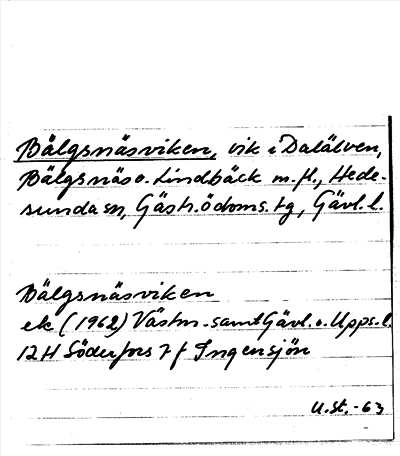 Bälgsnäsviken, vik i Dalälven,
Bälgsnäs o. Lindbäck m.fl., Hede-
sunda sn, Gästr. ö. doms. tg, Gävl. l.
Bälgsnäsviken
ek (1962) Västm. samt Gävl. o. Upps. l.
12H Söderfors 7 f Ingensjön
U.St. -63